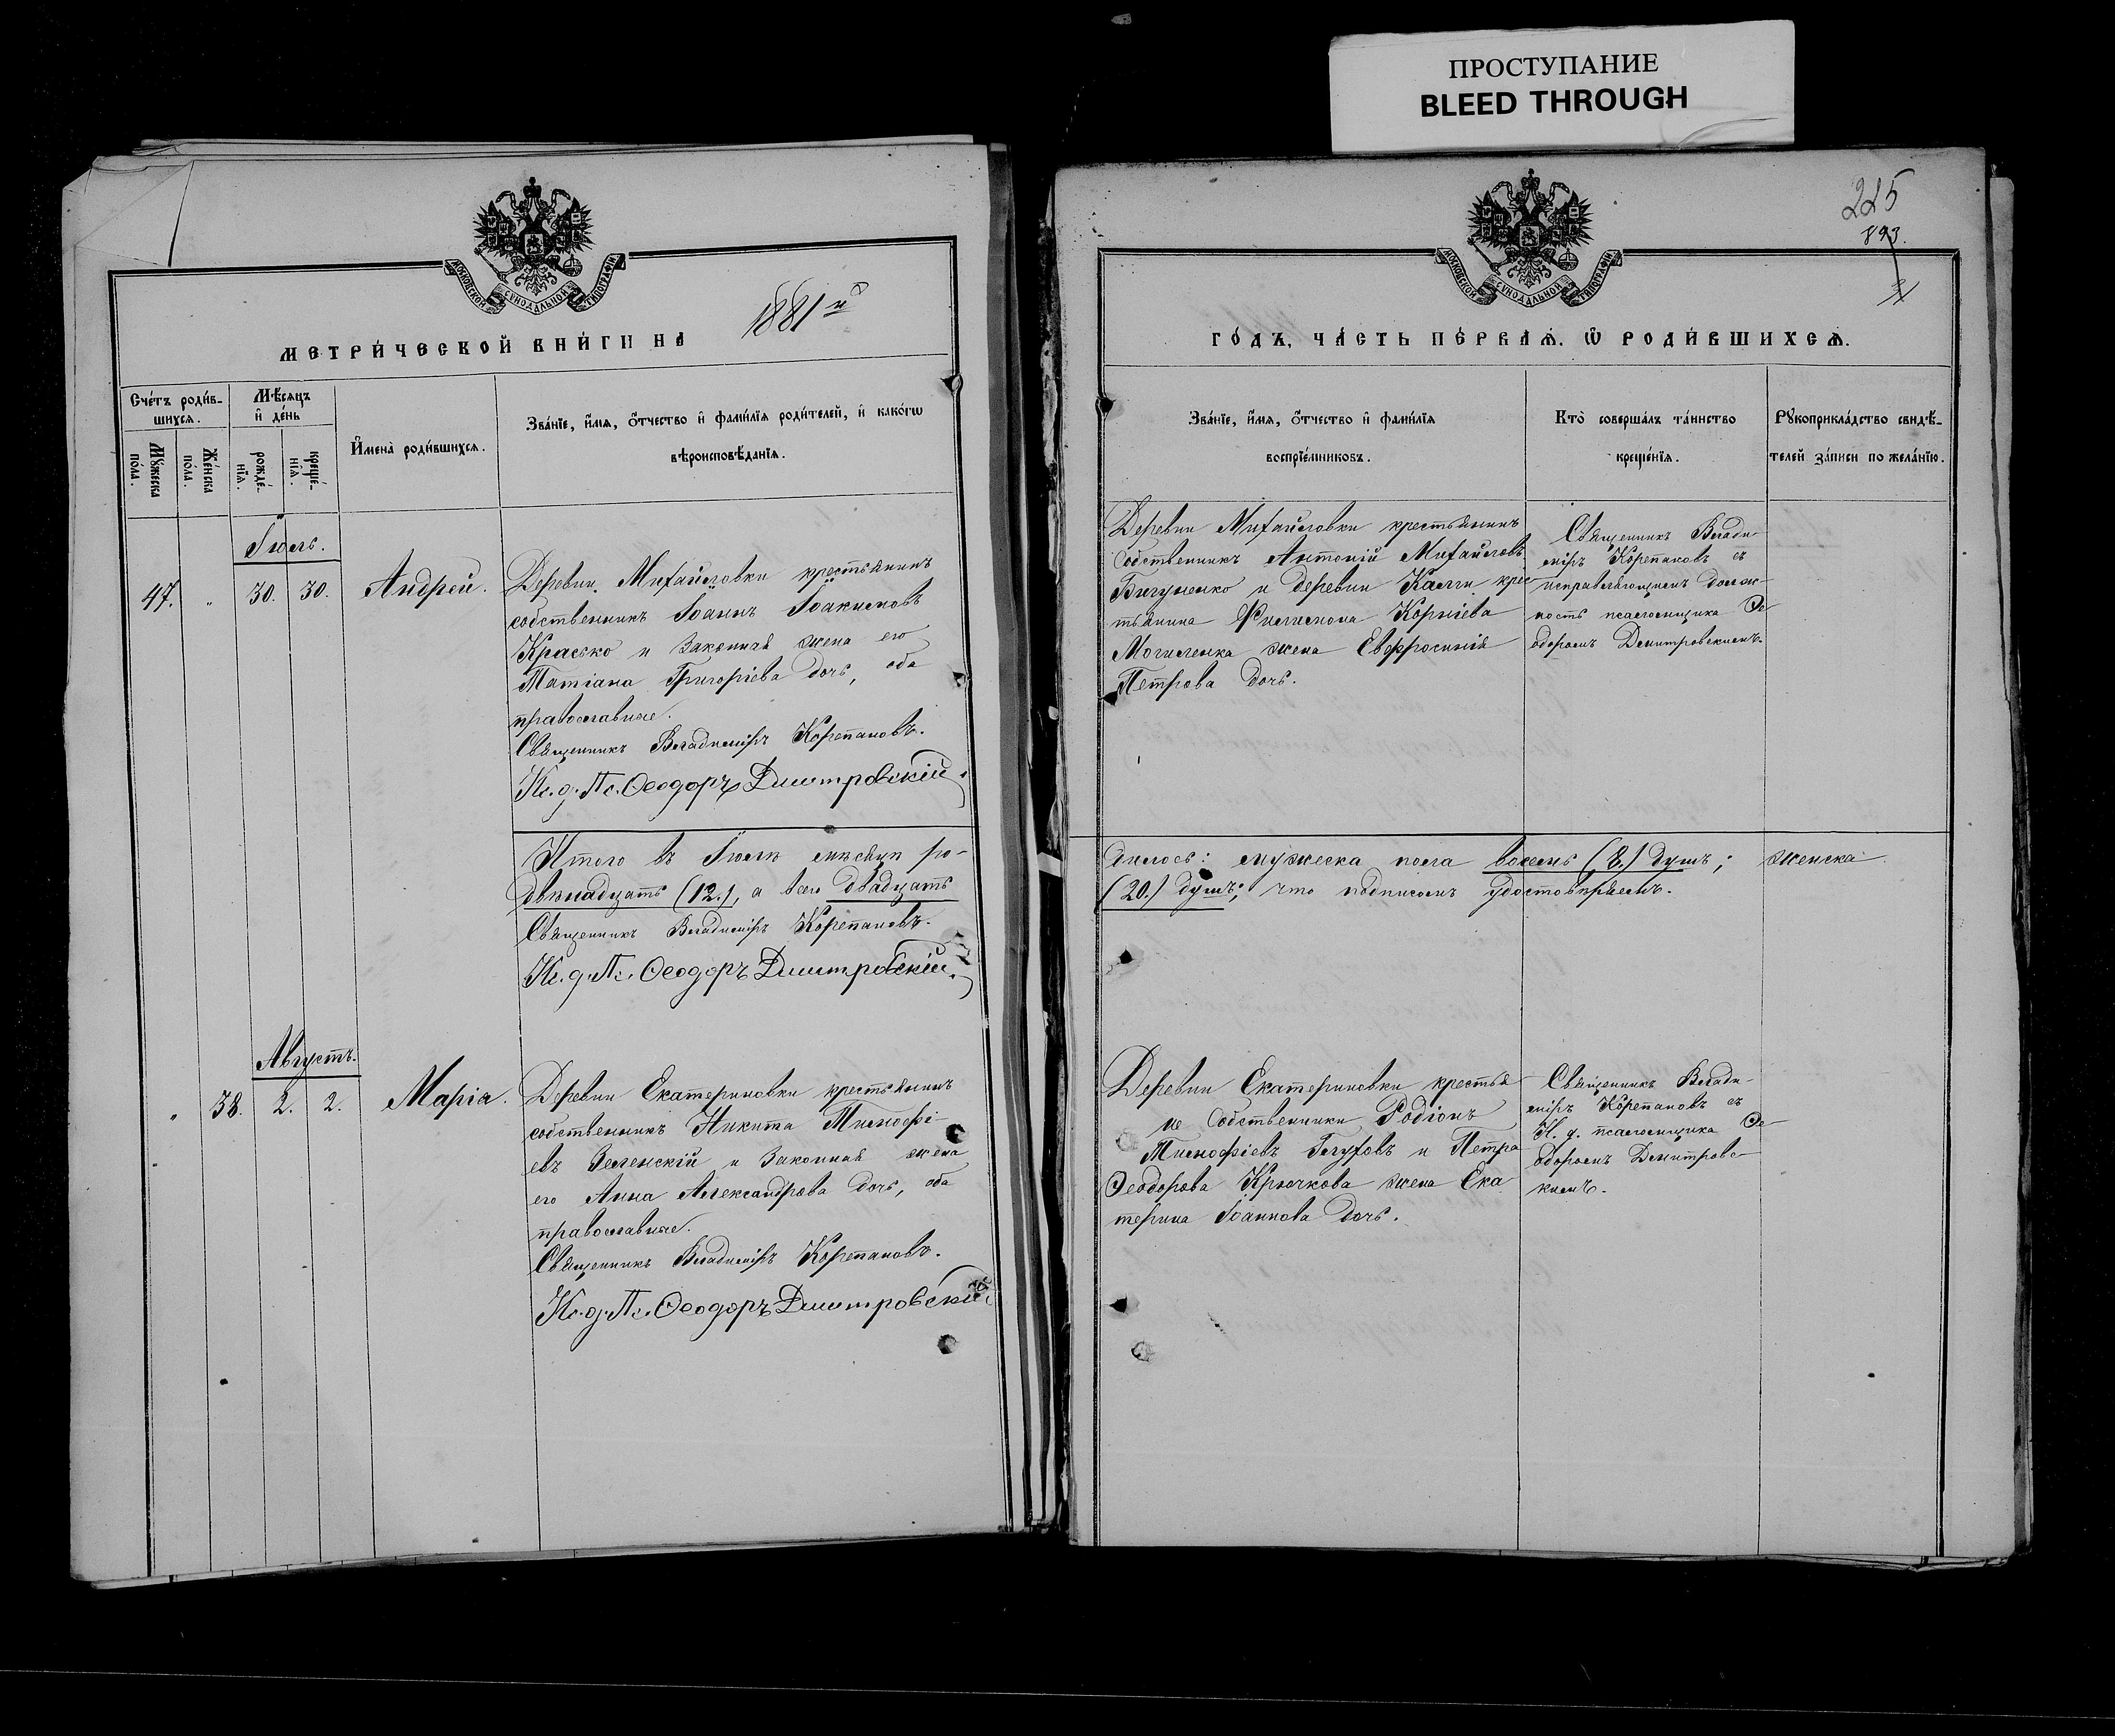 ПРОСТУПАНИЕ
BLEED THROUGH
МОСКОВСКОЙ СѴНОДАЛЬНОЙ ТИПОГРАФІИ
МЕТРИ́ЧЕСКОЙ КНИ́ГИ НА
1881 й
Счéтъ роди́в-
шихсѧ.
Мѣ́сѧцъ
и҆ дéнь
Мꙋ́жеска
пóла.
Жéнска
пóла.
рождé-
нїѧ.
крещé-
нїѧ.
И҆менà роди́вшихсѧ.
Звáнїе, и҆́мѧ, ѻ҆́тчество и҆ фами́лїѧ роди́телей, и҆ какóгѡ
вѣроисповѣ́данїѧ.
Іюль.
47. " 30. 30. Андрей.
Деревни Михайловки крестьянинъ
собственникъ Іоаннъ Іоакимовъ
Красько и законная жена его
Татіана Григоріева дочь, оба
православные.
Священникъ Владиміръ Корепановъ.
Ис. д. Пс. Ѳеодоръ Дмитровскій
Итого въ Іюлѣ мѣсяцѣ ро-
двѣнадцать (12.), а всего двадцать
Священникъ Владиміръ Корепановъ.
Ис. д. Пс. Ѳеодоръ Дмитровскій.
Августъ.
" 38. 2. 2. Марія.
Деревни Екатериновки крестьянинъ
собственникъ Никита Тимофі-
евъ Зеленскій и законная жена
его Анна Александрова дочь, оба
православные.
Священникъ Владиміръ Корепановъ.
Ис. д. Пс. Ѳеодоръ Дмитровскій
225
893.
МОСКОВСКОЙ СѴНОДАЛЬНОЙ ТИПОГРАФІИ
ГÓДЪ, ЧÁСТЬ ПÉРВАѦ. Ѽ РОДИ́ВШИХСѦ.
Звáнїе, и҆́мѧ, ѻ҆́тчество и҆ фами́лїѧ
воспрїéмниковъ.
Ктò совершáлъ тáинство
крещéнїѧ.
Рꙋкоприклáдство свидѣ́-
телей зáписи по желáнїю.
Деревни Михайловки крестьянинъ
собственникъ Антоній Михайловъ
Бигуненко и деревни Калги крес-
тьянина Филимона Корніева
Могиленка жена Евфросинія
Петрова дочь.
Священникъ Влади-
міръ Корепановъ съ
исправляющимъ долж-
ность псаломщика Ѳе-
одоромъ Дмитровскимъ.
дилось: мужеска пола восемь (8.) душъ; женска
(20.) душъ; что подписомъ удостовѣряемъ.
Деревни Екатериновки крестья-
не собственники Родіонъ
Тимофіевъ Глуховъ и Петра
Ѳеодорова Крючкова жена Ека
терина Іоаннова дочь.
Священникъ Влади-
міръ Корепановъ съ
И. д. псаломщика Ѳе-
одоромъ Дмитровс-
кимъ.